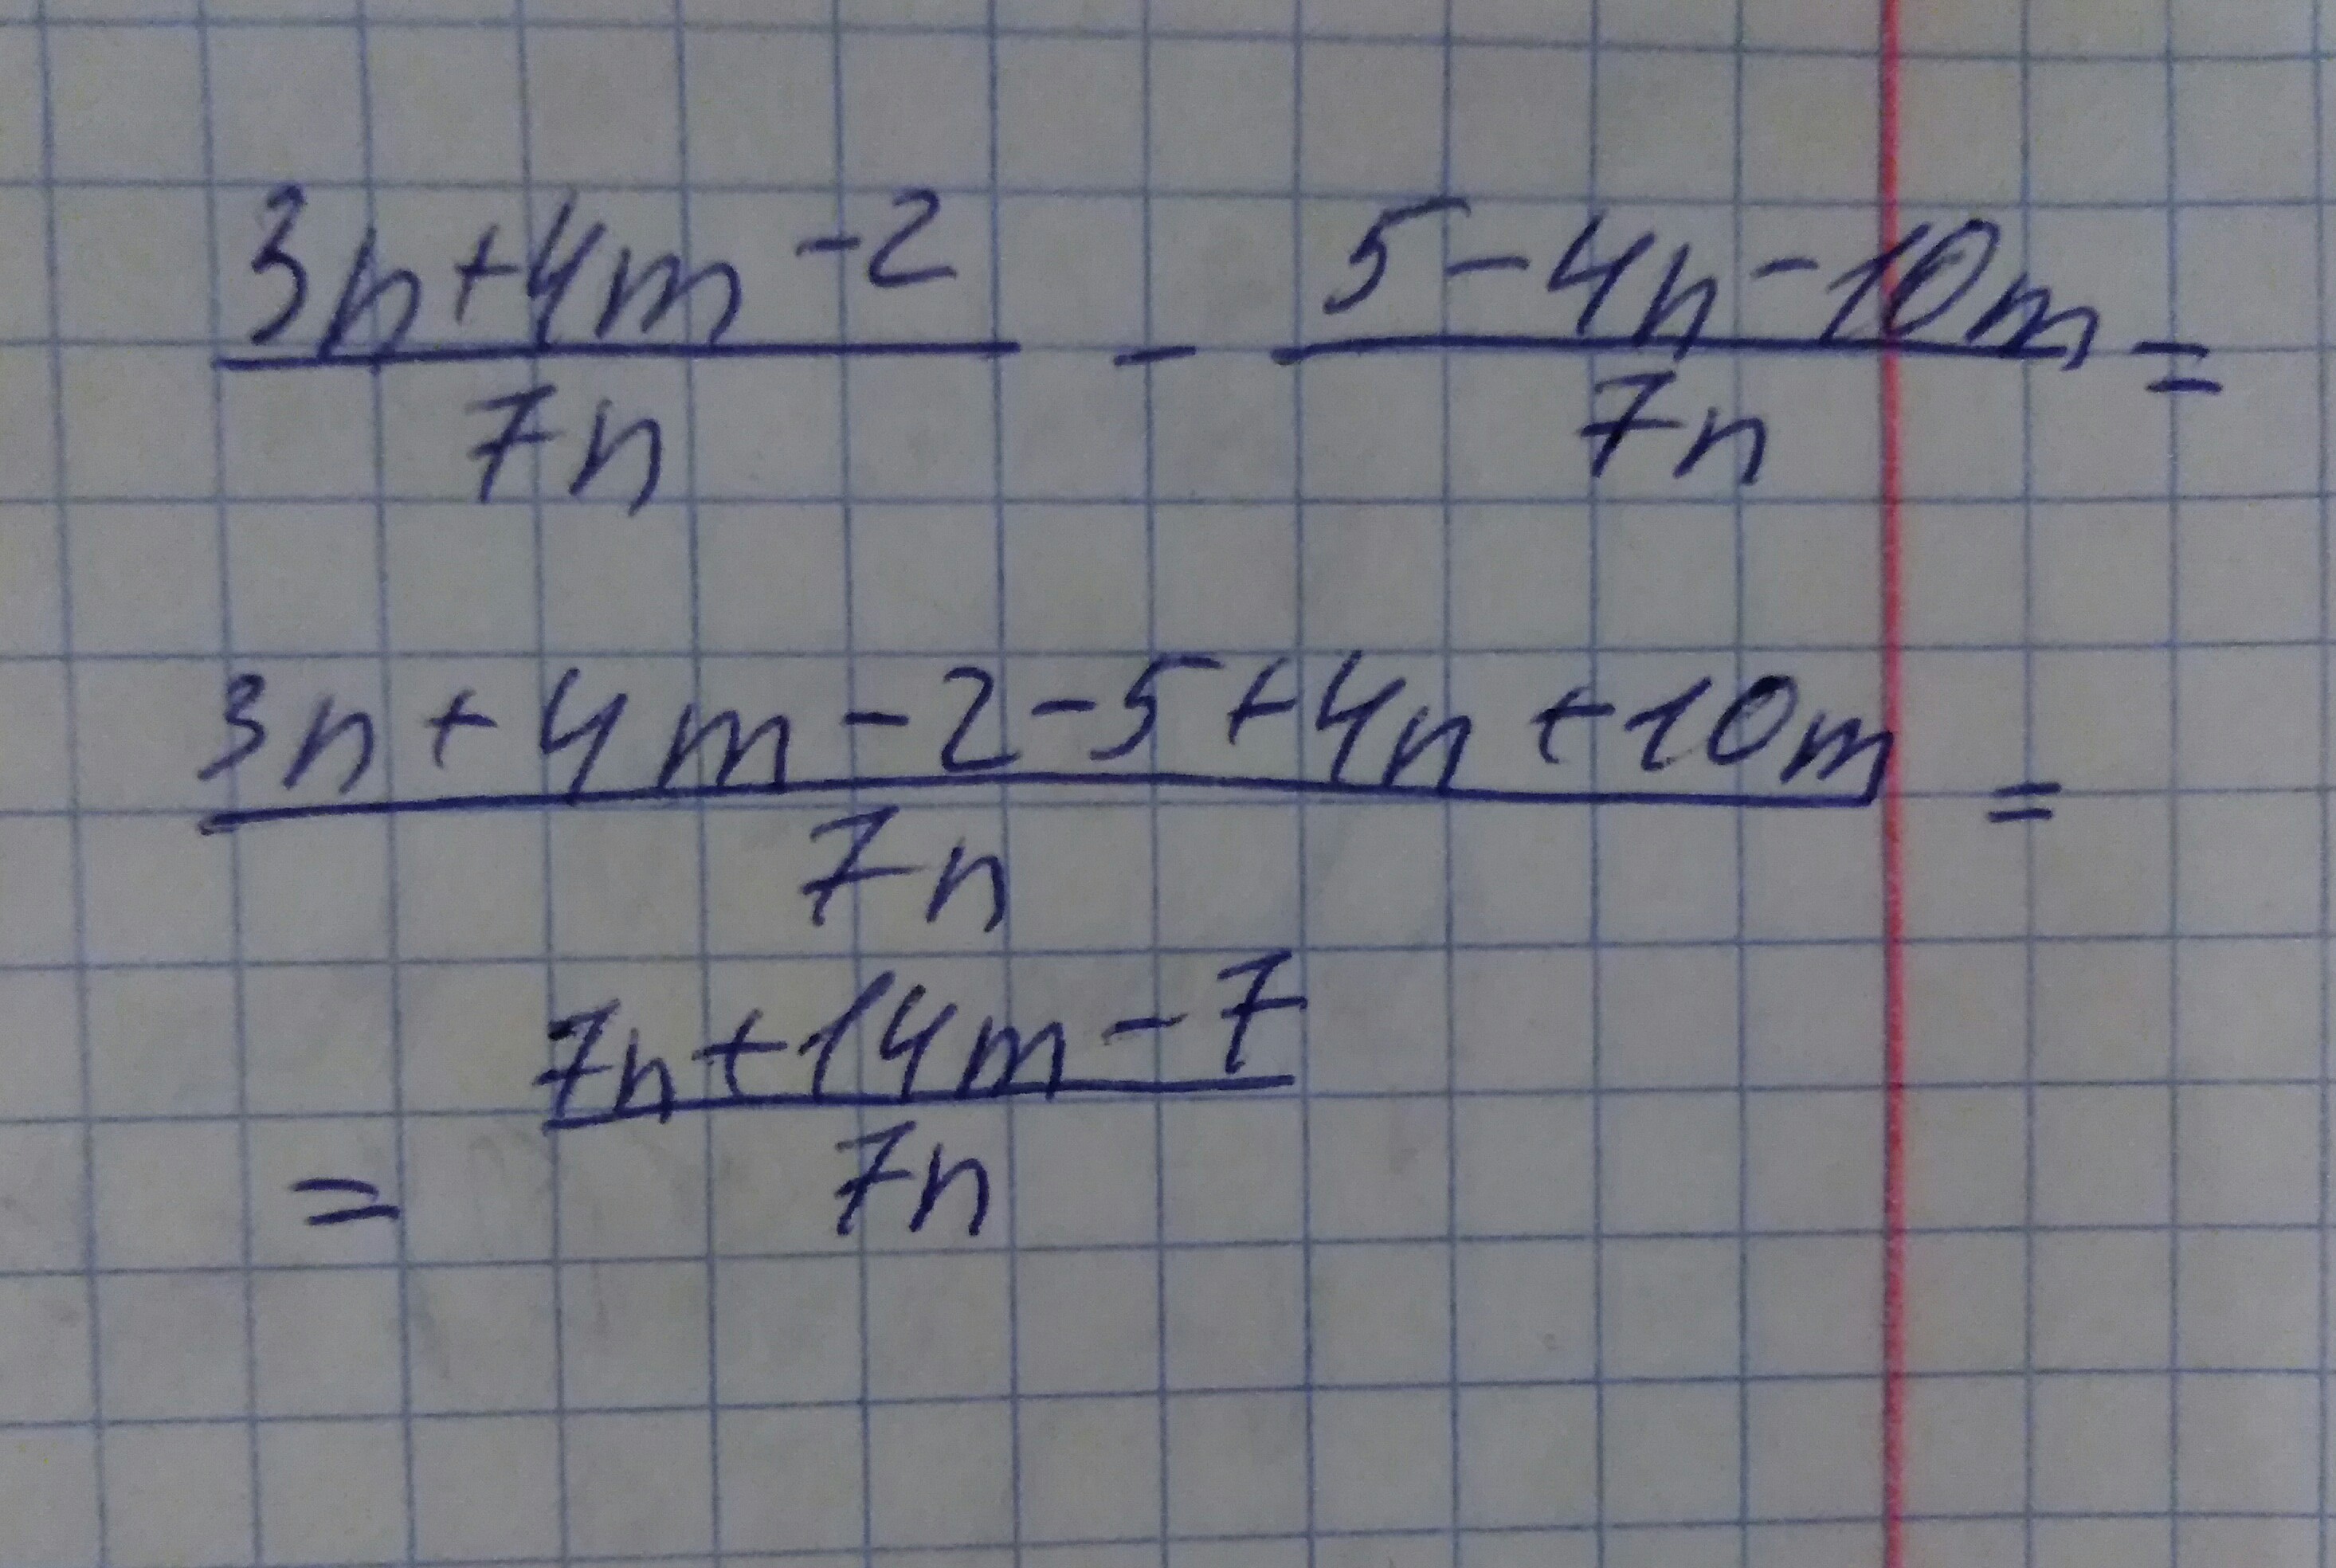 3n+4m-2/7n - 5-4n-10m/7n =
3n+4m-2-5+4n+10m/7n =
= 7n+14m-7/7n